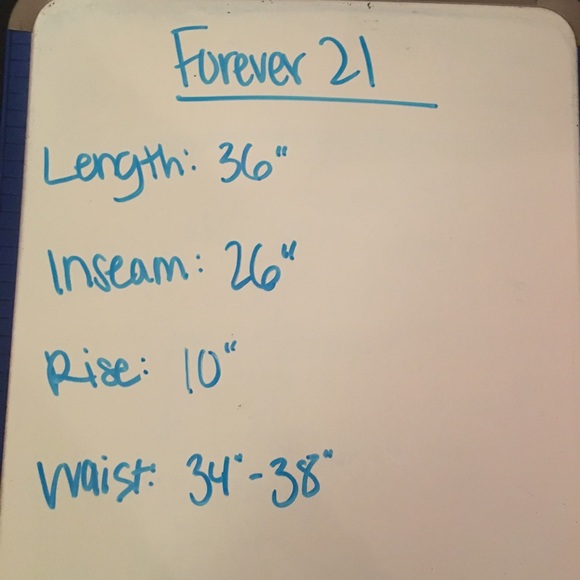 Forever 21
Length: 36"
Inseam: 26"
Rise: 10"
Waist: 34"-38"